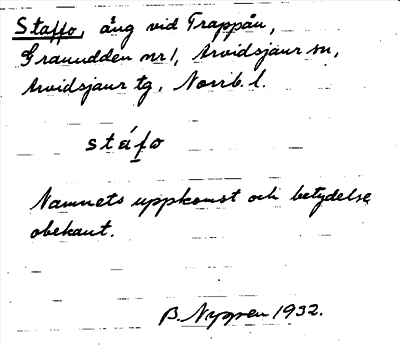 Staffo, äng vid Trappån,
Granudden nr 1, Arvidsjaur sn,
Arvidsjaur tg, Norrb. l.
stáfo
Namnets uppkomst och betydelse
obekant.
B. Nyppen 1932.